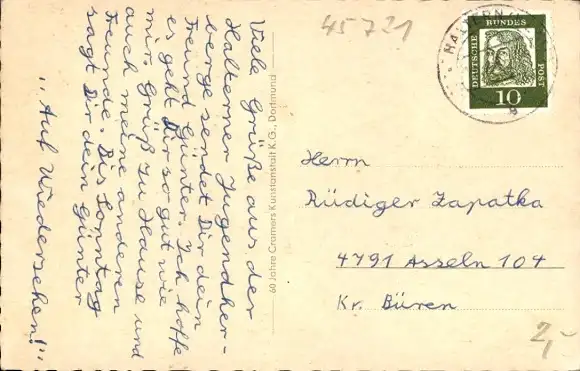 Viele Grüße aus der
Halterner Jugendher-
berge sendet Dir dein
Freund Günter. Ich hoffe
es geht Dir so gut wie
mir. Grüß zu Hause und
auch meine anderen
Freunde. Bis Sonntag
sagt Dir dein Günter
"Auf Wiedersehen!"
60 Jahre Cramers Kunstanstalt K.G., Dortmund
45721
HALTERN
DEUTSCHE BUNDES POST
10
Herrn
Rüdiger Zapatka
4791 Asseln 104
Kr. Büren
2,-